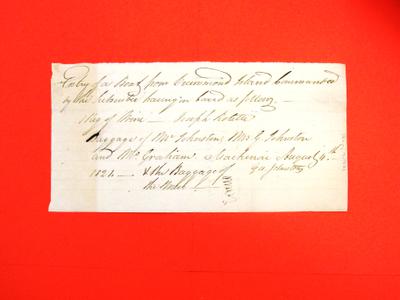 Entry of a Boat from Drummond Island Commanded
by the Subscriber having on board as follows —
1 Keg of Wine — Joseph Rolette
Baggage of Mr Johnston, Mr G. Johnston
and Mr Graham. Mackinac August 4th
1821 — & the Baggage of Geo Johnston
the